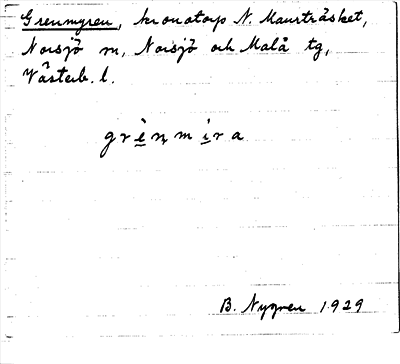 Grenmyren, kronotorp N. Maurträsket,
Norsjö sn, Norsjö och Malå tg,
Västerb. l.
grènmira
B. Nygren 1929